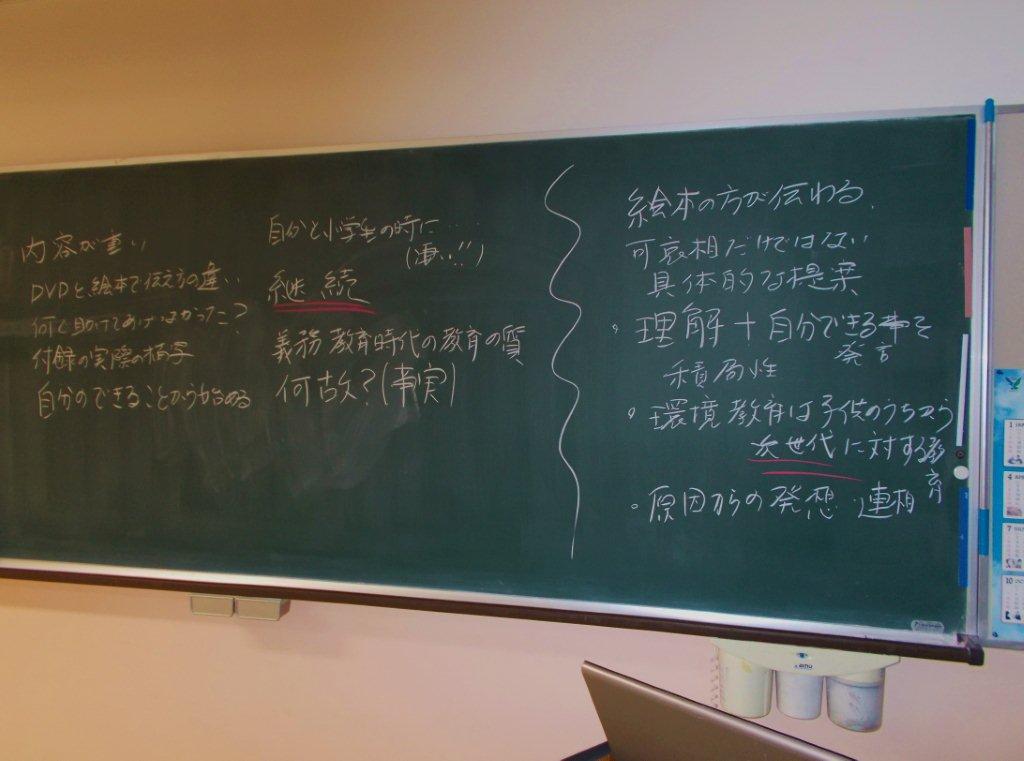 内容が重い
DVDと絵本で伝え方の違い
何に助けてあげばよかった?
付録の実際の描写
自分のできることから始める
自分と小学生の時に……
(凄い!!)
継続
義務教育時代の教育の質
何故?(事実)
絵本の方が伝わる、
可哀相だけではない
具体的な提案
。理解+自分できる事を
発言
積局性
。環境教育は子供のうちから
次世代に対する教
育
。原因からの発想・連相
1
4
7
10